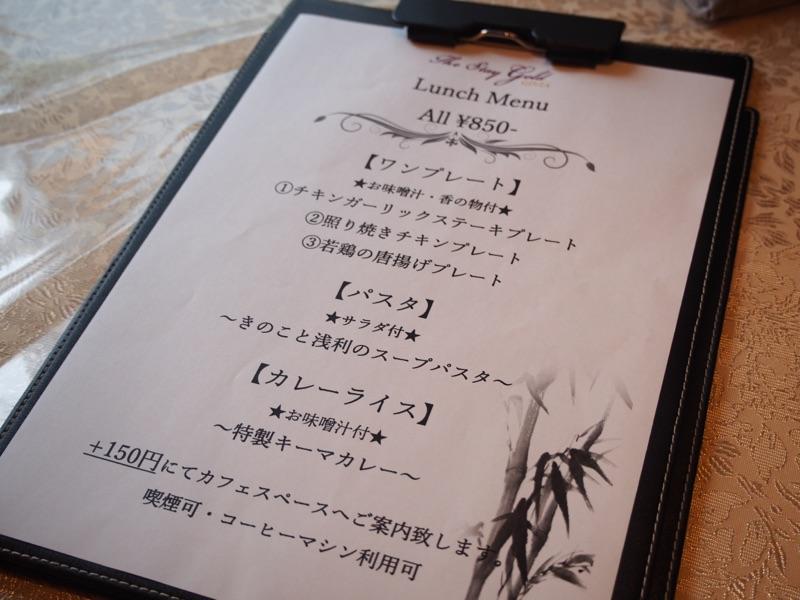 The Stay Gold
GINZA
Lunch Menu
All ¥850-
【ワンプレート】
★お味噌汁・香の物付★
①チキンガーリックステーキプレート
②照り焼きチキンプレート
③若鶏の唐揚げプレート
【パスタ】
★サラダ付★
～きのこと浅利のスープパスタ～
【カレーライス】
★お味噌汁付★
～特製キーマカレー～
+150円にてカフェスペースへご案内致します。
喫煙可・コーヒーマシン利用可